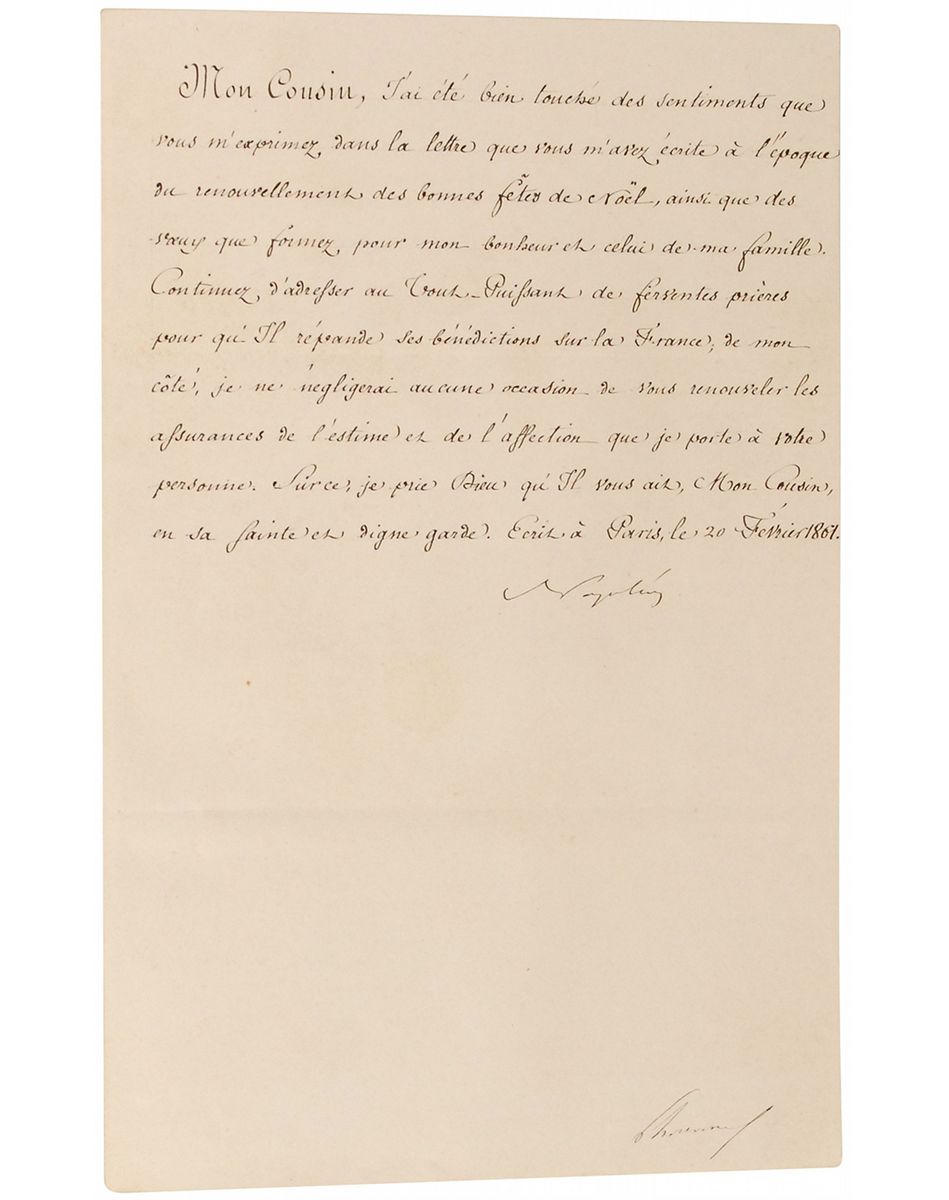 Mon Cousin, J'ai été bien touché des sentiments que
vous m'exprimez, dans la lettre que vous m'avez écrite à l'époque
du renouvellement des bonnes fêtes de Noël, ainsi que des
vœux que formez, pour mon bonheur et celui de ma famille.
Continuez, d'adresser au Tout-Puissant de ferventes prières
pour qu'Il répande ses bénédictions sur la France; de mon
côté, je ne négligerai aucune occasion de vous renouveler les
assurances de l'estime et de l'affection que je porte à votre
personne. Sur ce, je prie Dieu qu'Il vous ait, Mon Cousin,
en sa sainte et digne garde. Ecrit à Paris, le 20 Février 1861.
Napoléon
Thouvenel